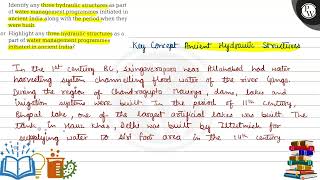 Identify any three hydraulic structures as part
of water management programmes initiated in
ancient India along with the period when they
were built.
Or
Highlight any three hydraulic structures as a
part of water management programmes
initiated in ancient India?
Key Concept Ancient Hydraulic Structures
In the 1st century BC, Sringaverapura near Allahabad had water
harvesting system channelling flood water of the river Ganga.
During the region of Chandragupta Maurya, dams, lakes and
irrigation systems were built. In the period of 11th century,
Bhopal lake, one of the largest artificial lakes was built. The
tank, in Hauz Khas, Delhi was built by Iltutmish for
supplying water to Siri Fort area in the 14th century